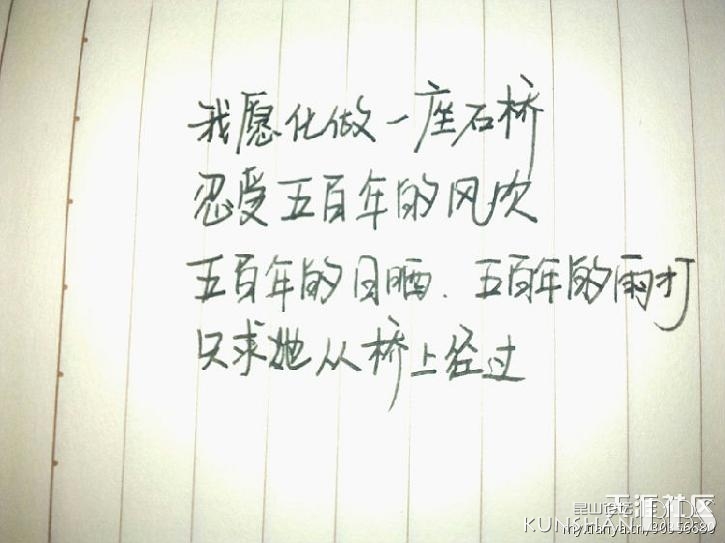 我愿化做一座石桥
忍受五百年的风吹
五百年的日晒.五百年的雨打
只求她从桥上经过
天涯社区
昆山论坛
KUNSHAN